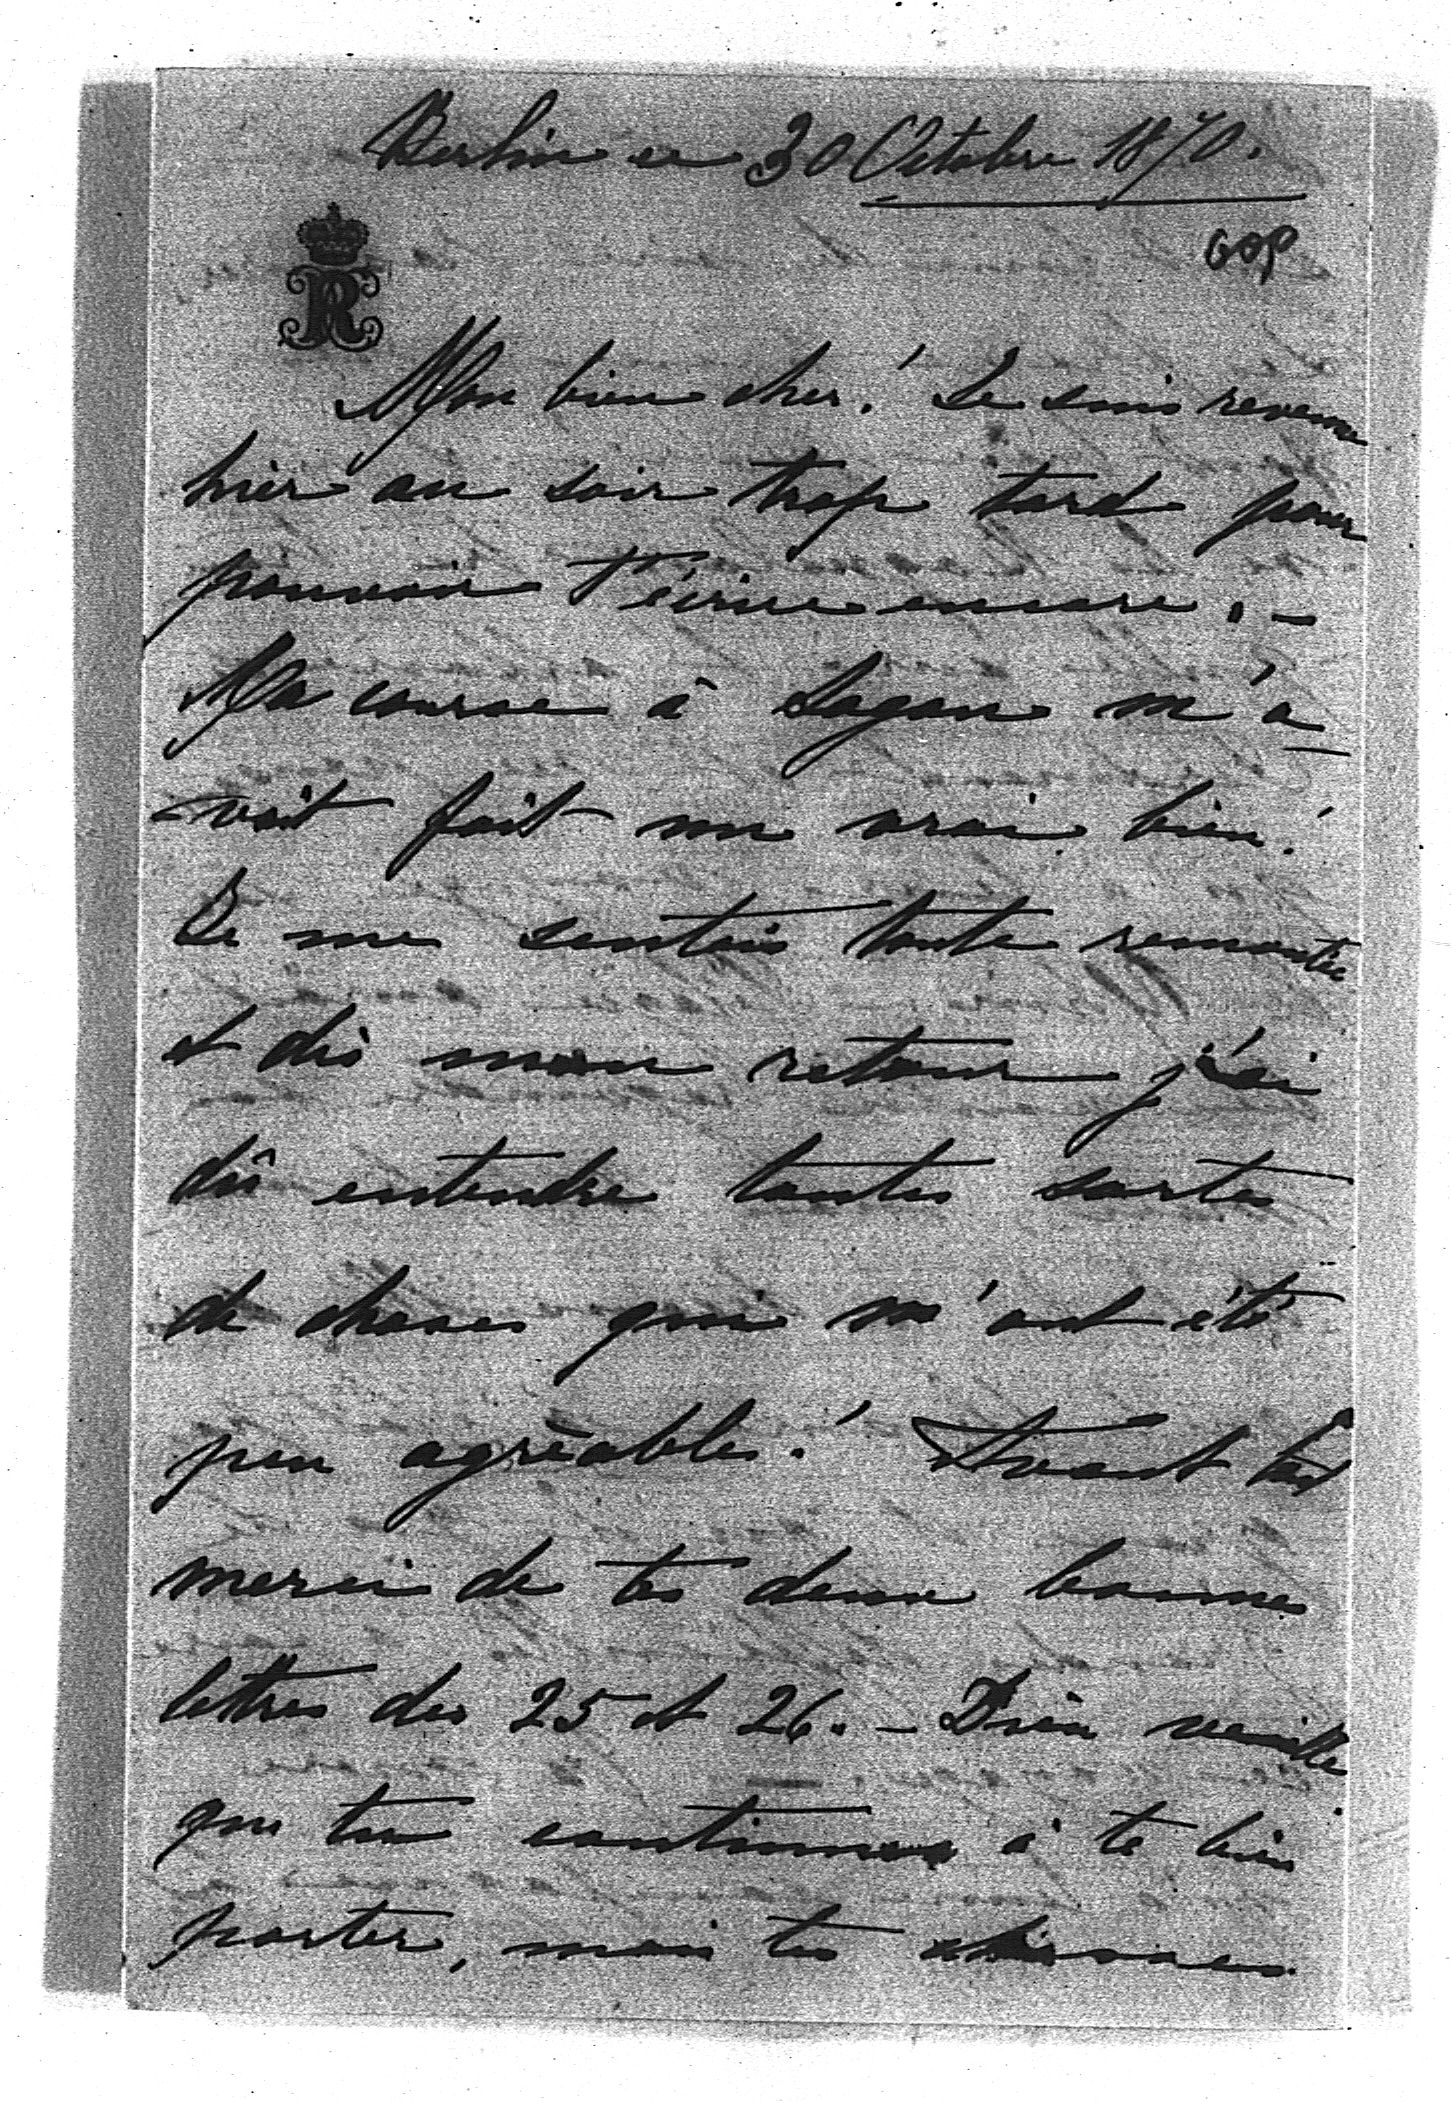 Berlin ce 30 Octobre 1870.
R
Mon bien cher! Je suis revenue
hier au soir trop tard pour
pouvoir t'écrire encore. –
Ma course à Sagan m'a
vait fait un vrai bien!
Je me sentais toute remontée
et dès mon retour j'ai
dû entendre toutes sortes
de choses qui m'ont été
peu agréables! Avant tout
merci de tes deux bonnes
lettres des 25 et 26. – Dieu veuille
que tu continues à te bien
porter, mais tes